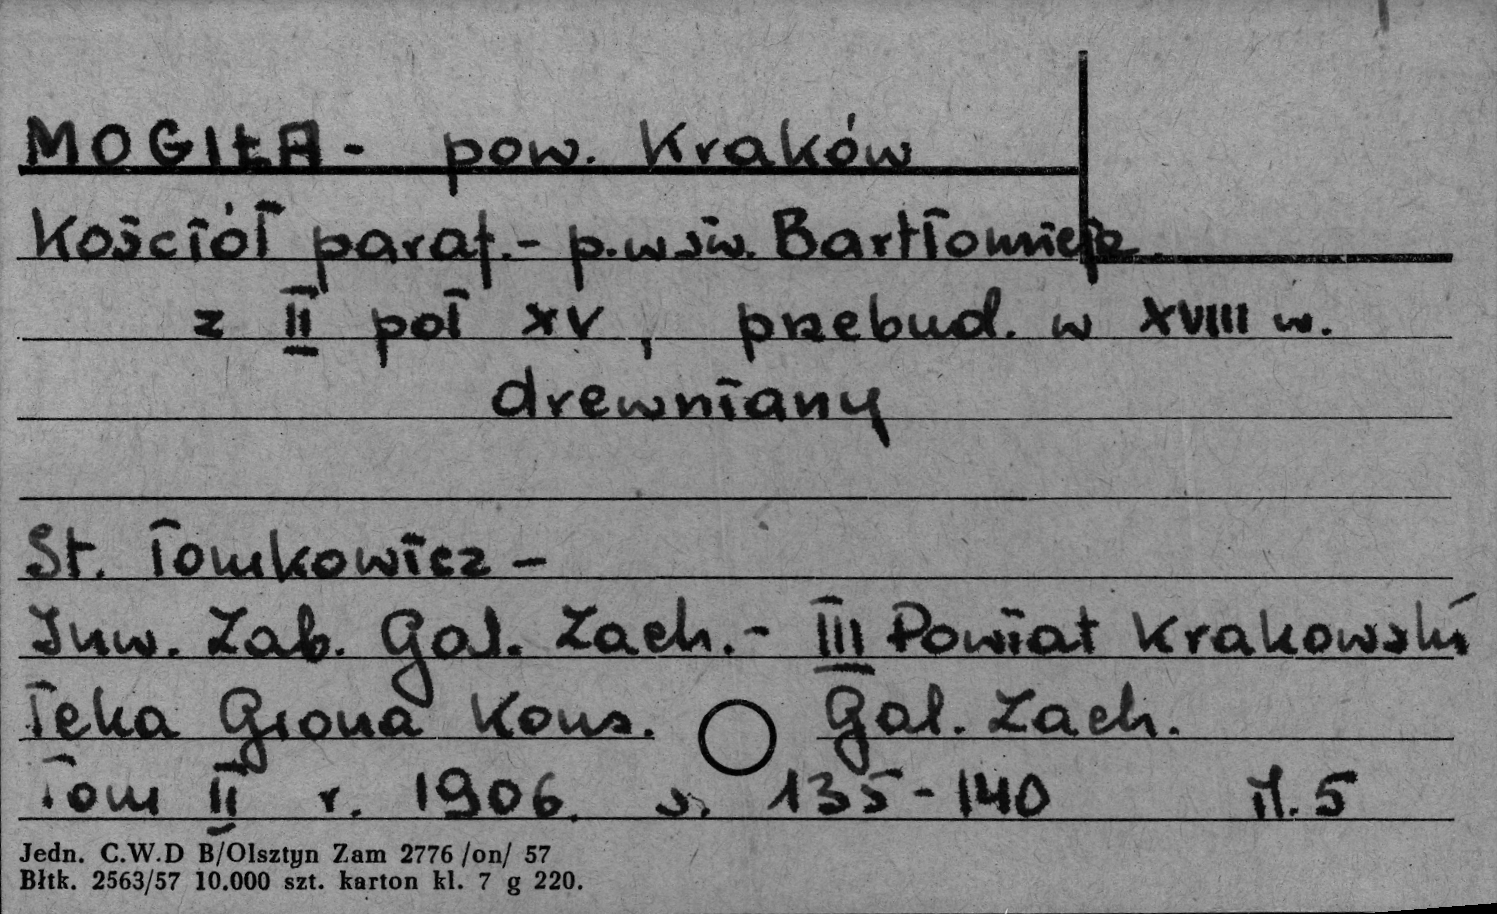 MOGIŁA - pow. Kraków
Kościół paraf. - p.w św. Bartłomieja
z II poł XV, przebud. w XVIII w.
drewniany
St. Tomkowicz -
Inw. Zab. Gal. Zach. - III Powiat Krakowski
Teka Grona Kons. Gal. Zach.
Tom II r. 1906. s. 135-140 il. 5
Jedn. C.W.D B/Olsztyn Zam 2776 /on/ 57
Błtk. 2563/57 10.000 szt. karton kl. 7 g 220.